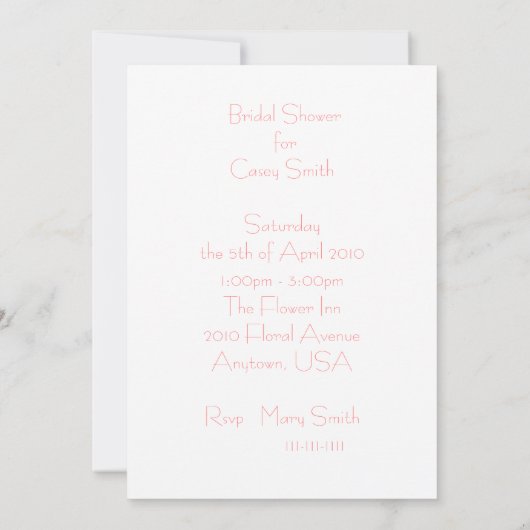 Bridal Shower
for
Casey Smith
Saturday
the 5th of April 2010
1:00pm - 3:00pm
The Flower Inn
2010 Floral Avenue
Anytown, USA
Rsvp Mary Smith
111-111-1111